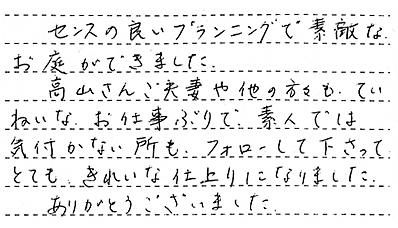 センスの良いプランニングで素敵な
お庭ができました.
高山さんご夫妻や他の方々も.てい
ねいな.お仕事ぶりで.素人では
気付かない所も.フォローして下さって
とても.きれいな仕上りになりました.
ありがとうございました.